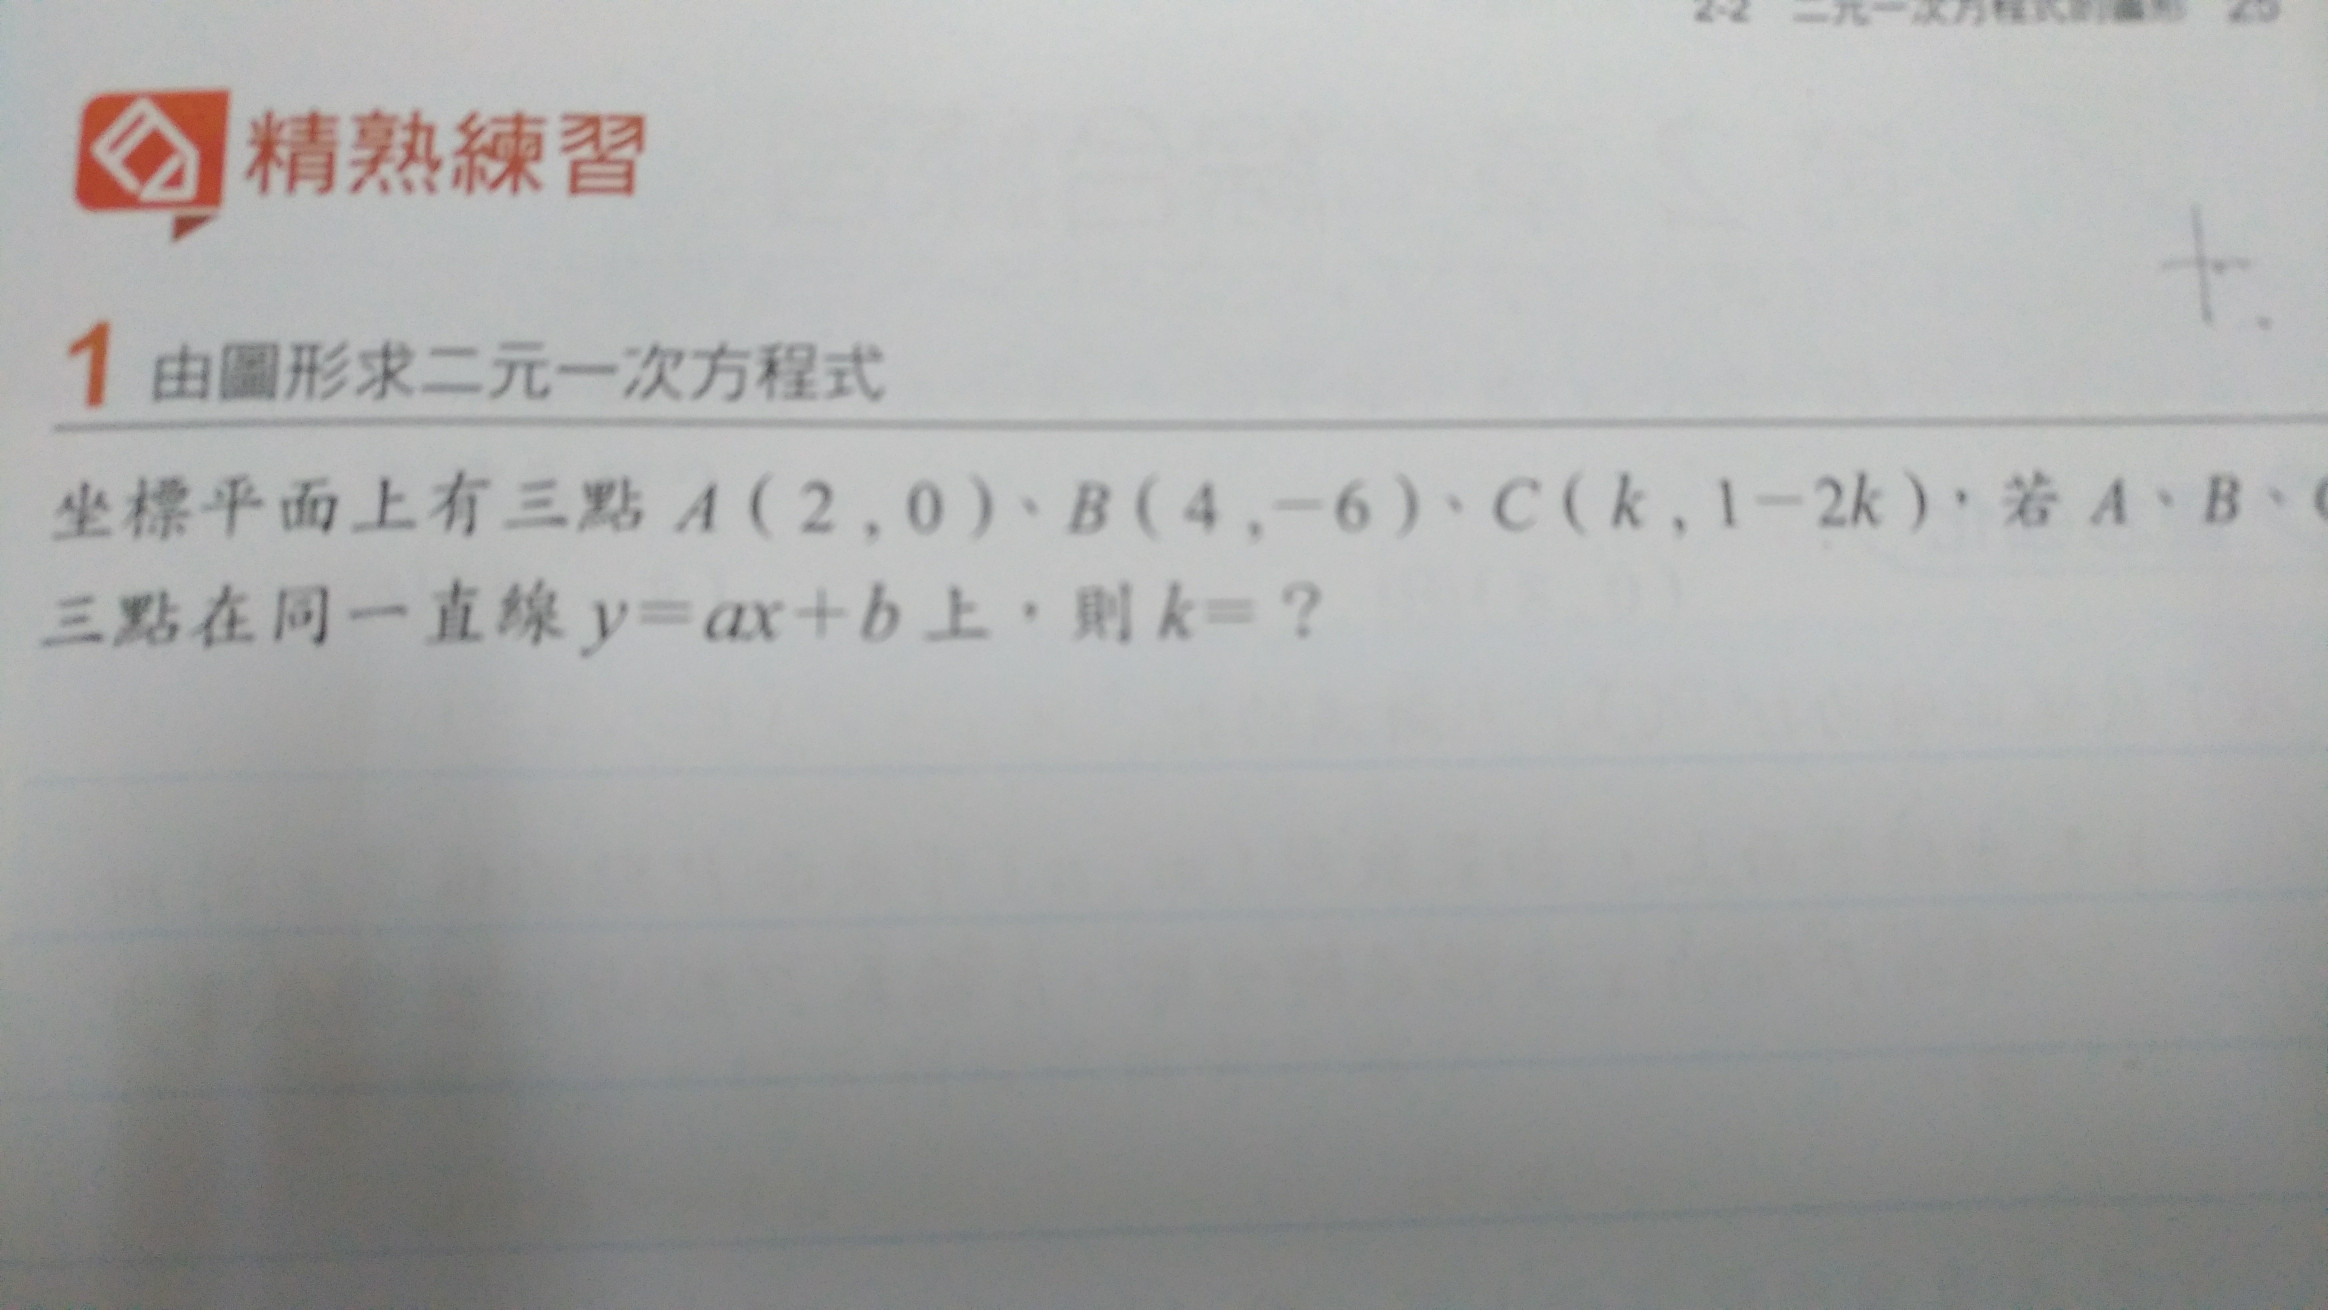 2-2 二元一次方程式的圖形 25
精熟練習
1 由圖形求二元一次方程式
坐標平面上有三點 A(2,0)、B(4,-6)、C(k,1-2k),若 A、B、C
三點在同一直線 y=ax+b 上,則 k=?